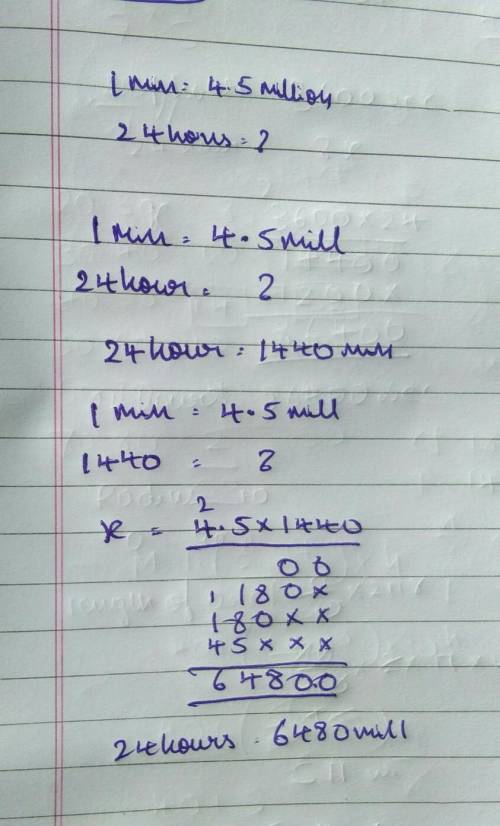 1 min = 4.5 million
24 hours = ?
1 min = 4.5 mill
24 hour = ?
24 hour = 1440 min
1 min = 4.5 mill
1440 = ?
2
x = 4.5 x 1440
00
1 180x
180xx
45xxx
6480.0
24 hours = 6480 mill